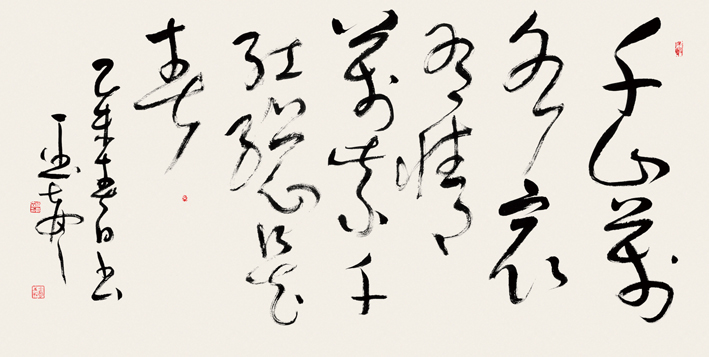 千山萬
有情
萬紫千
紅總是
春
乙未春日書